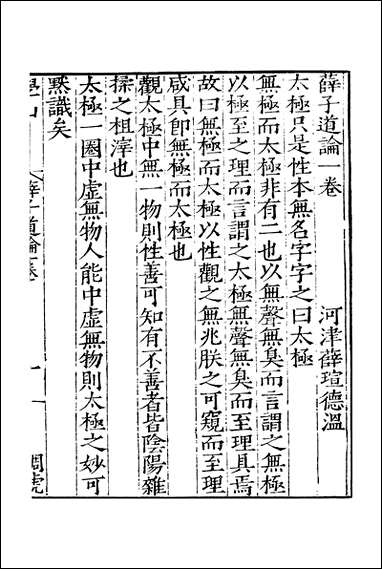 薛子道論一卷
河津薛瑄德溫
太極只是性本無名字字之曰太極
無極而太極非有二也以無聲無臭而言謂之無極
以極至之理而言謂之太極無聲無臭而至理具焉
故曰無極而太極以性觀之無兆朕之可窺而至理
咸具即無極而太極也
觀太極中無一物則性善可知有不善者皆陰陽雜
揉之粗滓也
太極一圈中虛無物人能中虛無物則太極之妙可
默識矣